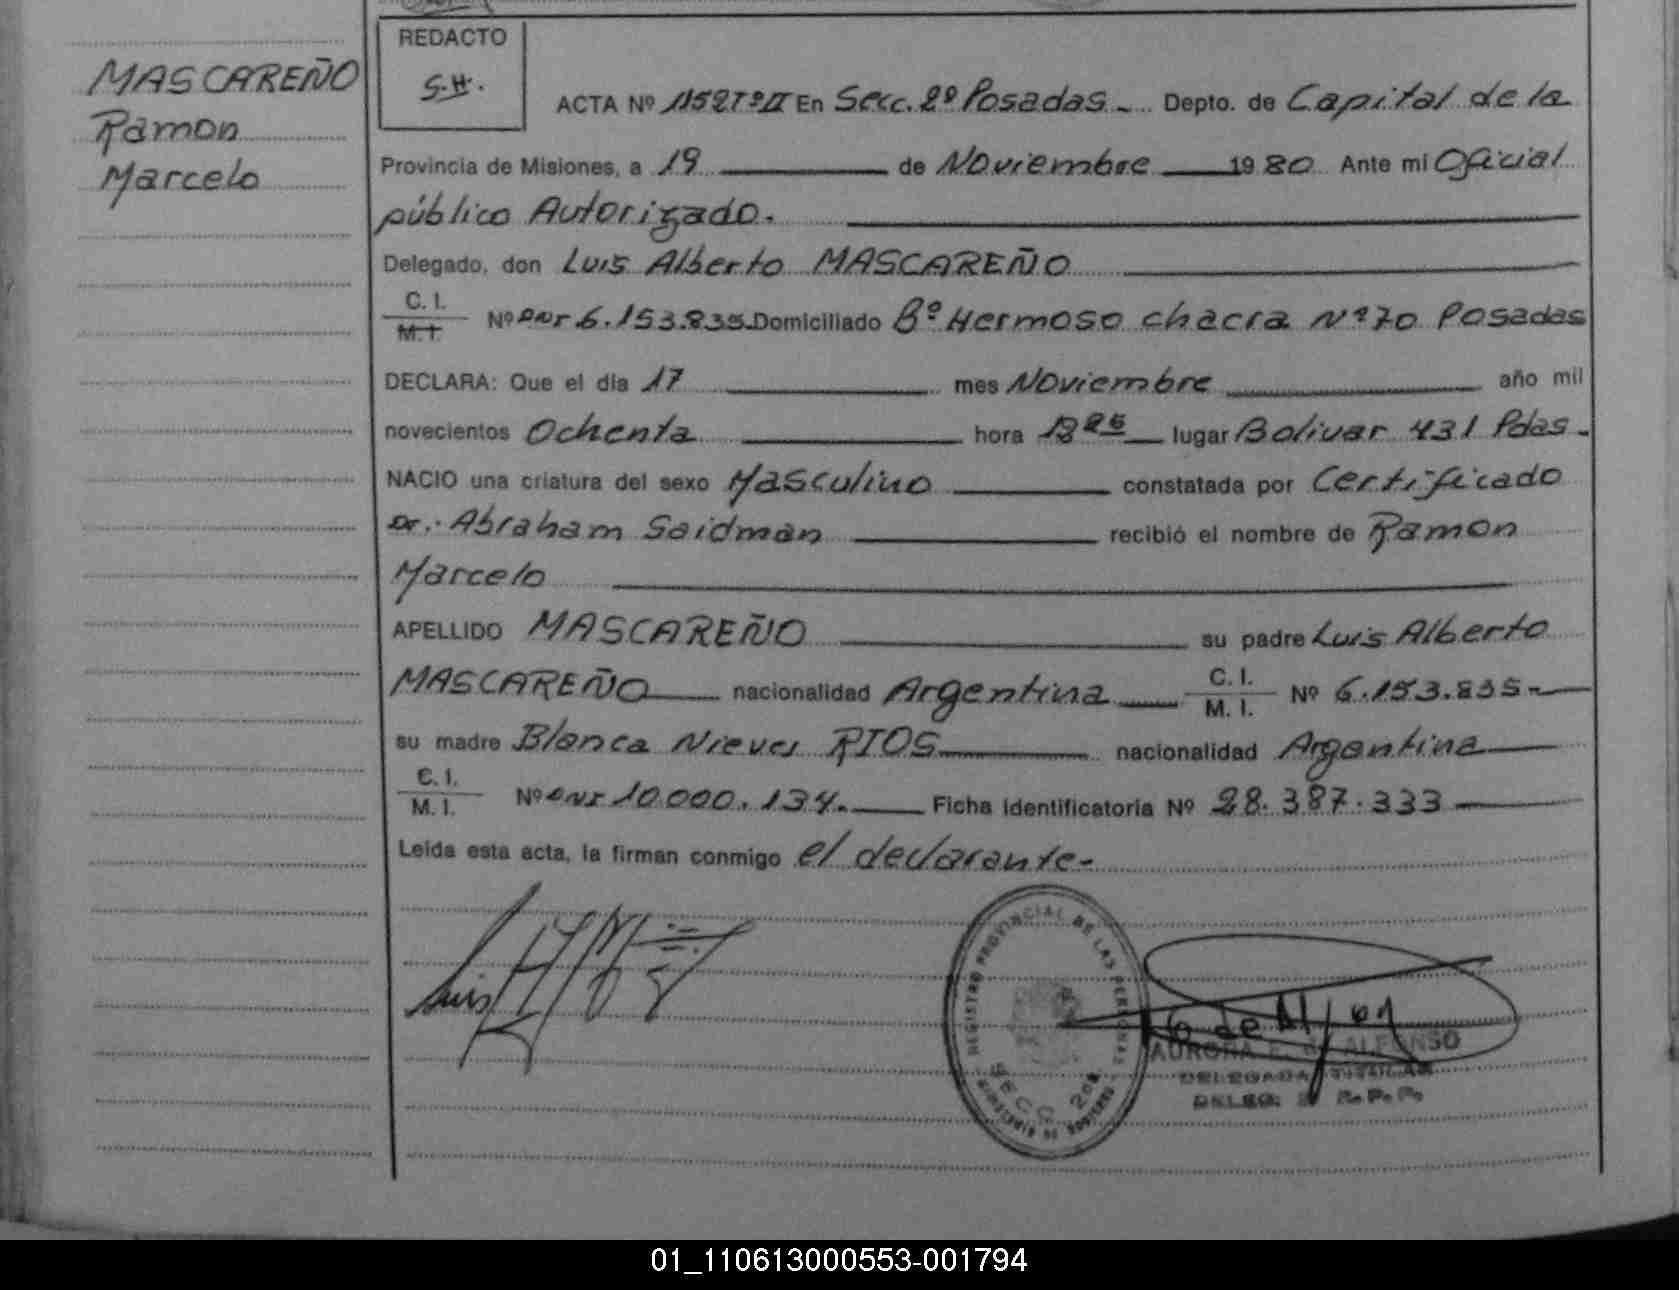 MASCAREÑO
Ramon
Marcelo
REDACTO
S.H.
ACTA Nº 1152 Tº II En Secc. 2º Posadas - Depto. de Capital de la
Provincia de Misiones, a 19 de Noviembre 1980 Ante mi Oficial
público Autorizado.
Delegado, don Luis Alberto MASCAREÑO
C. I.
M. I.
Nº DNI 6.153.835 Domiciliado Bº Hermoso chacra Nº 70 Posadas
DECLARA: Que el día 17 mes Noviembre año mil
novecientos Ochenta hora lugar Bolivar 431 Pdas.
NACIO una criatura del sexo Masculino constatada por Certificado
Dr. Abraham Saidman recibió el nombre de Ramon
Marcelo
APELLIDO MASCAREÑO su padre Luis Alberto
MASCAREÑO nacionalidad Argentina C. I. M. I. Nº 6.153.835-
su madre Blanca Nieves RIOS nacionalidad Argentina
C. I.
M. I.
Nº DNI 10.000.134. Ficha Identificatoria Nº 28.387.333
Leída esta acta, la firman conmigo el declarante-
REGISTRO PROVINCIAL DE LAS PERSONAS
SECC. 2da
MINISTERIO DE GOBIERNO
AURORA E. ALFONSO
DELEGADA TITULAR
DELEG. R. P. P.
01_110613000553-001794